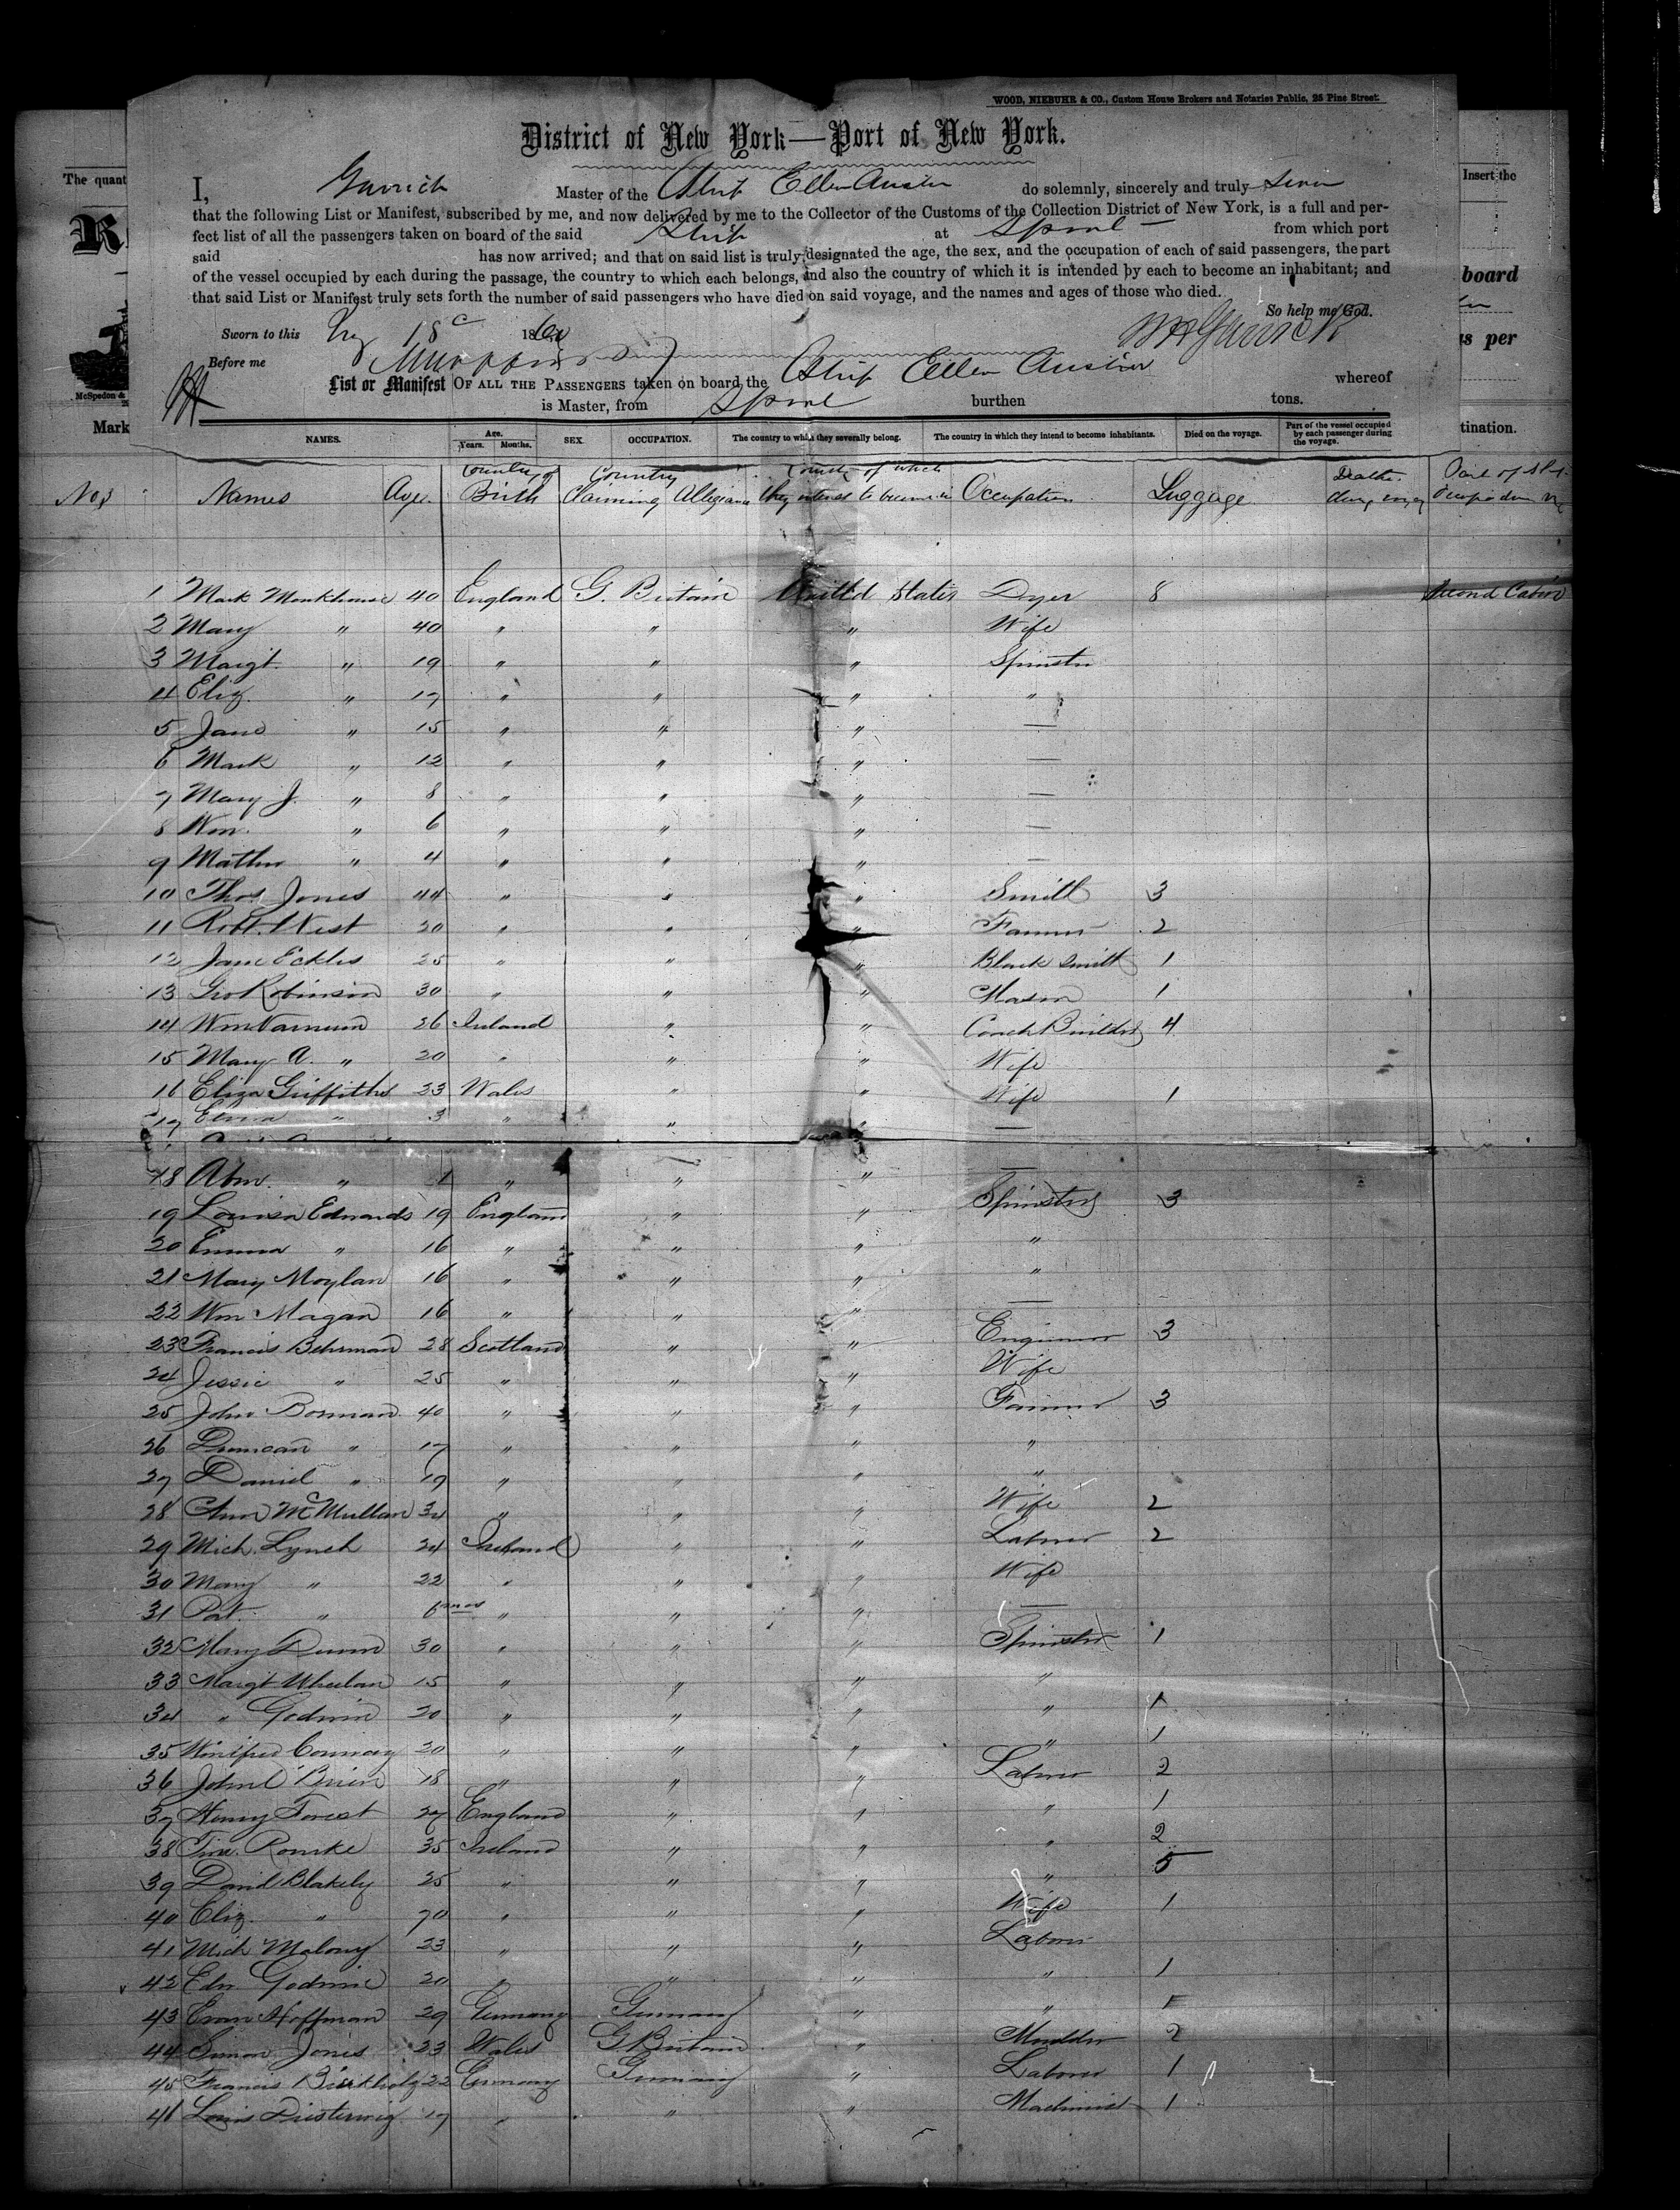 WOOD, NIEBUHR & CO., Custom House Brokers and Notaries Public, 25 Pine Street.
District of New York—Port of New York.
I, Garrick Master of the Ship Ellen Austin do solemnly, sincerely and truly swear
that the following List or Manifest, subscribed by me, and now delivered by me to the Collector of the Customs of the Collection District of New York, is a full and per-
fect list of all the passengers taken on board of the said Ship at Lpool from which port
said has now arrived; and that on said list is truly designated the age, the sex, and the occupation of each of said passengers, the part
of the vessel occupied by each during the passage, the country to which each belongs, and also the country of which it is intended by each to become an inhabitant; and
that said List or Manifest truly sets forth the number of said passengers who have died on said voyage, and the names and ages of those who died.
So help me God.
Sworn to this 18 1860
Before me
List or Manifest OF ALL THE PASSENGERS taken on board the Ship Ellen Austin whereof
is Master, from Lpool burthen tons.
The quant
R
McSpedon &
Mark
Insert the
board
s per
tination.
NAMES. Age. Years. Months. SEX. OCCUPATION. The country to which they severally belong. The country in which they intend to become inhabitants. Died on the voyage. Part of the vessel occupied by each passenger during the voyage.
Nos Names Age Country of Birth Country Claiming Allegiance Country of which they intend to become in Occupation Luggage Deaths
1 Mark Monkhouse 40 England G. Britain United States Dyer 8 Second Cabin
2 Mary " 40 " " " Wife
3 Margt. " 19 " " " Spinster
4 Eliz. " 17 " " " "
5 Jane " 15 " " " —
6 Mark " 12 " " " —
7 Mary J. " 8 " " " —
8 Wm. " 6 " " " —
9 Mathw " 4 " " " —
10 Thos Jones 44 " " " Smith 3
11 Robt. West 20 " " " Farmer 2
12 Jane Eckles 25 " " " Black Smith 1
13 Geo Robinson 30 " " " Mason 1
14 Wm Varnum 26 Ireland " " Coach Builder 4
15 Mary A. " 20 " " " Wife
16 Eliza Griffiths 23 Wales " " Wife 1
17 " 3 " " " —
18 Abm. " 1 " " " —
19 Louisa Edwards 19 England " " Spinster 3
20 Emma " 16 " " " "
21 Mary Moylan 16 " " " "
22 Wm Magan 16 " " " —
23 Francis Behrman 28 Scotland " " Engineer 3
24 Jessie " 25 " " " Wife
25 John Borman 40 " " " Farmer 3
26 Duncan " 17 " " " "
27 Daniel " 19 " " " "
28 Ann McMullan 34 " " " Wife 2
29 Mich. Lynch 24 Ireland " " Laborer 2
30 Mary " 22 " " " Wife
31 Pat. " 6 mos " " " —
32 Mary Dunn 30 " " " Spinster 1
33 Margt Whelan 15 " " " "
34 " Godwin 20 " " " " 1
35 Winifred Conway 20 " " " " 1
36 John O'Brien 18 " " " Laborer 2
37 Henry Forest 27 England " " " 1
38 Tim. Rourke 35 Ireland " " " 2
39 David Blakely 25 " " " " 5
40 Eliz. " 70 " " " Wife 1
41 Mich Malony 23 " " " Laborer
42 Edw Godwin 20 " " " " 1
43 Hoffman 29 Germany Germany " "
44 Simon Jones 23 Wales G. Britain " Moulder 2
45 Francis Birkholz 22 Germany Germany " Laborer 1
46 Louis Diesterwig 17 " " " Machinist 1